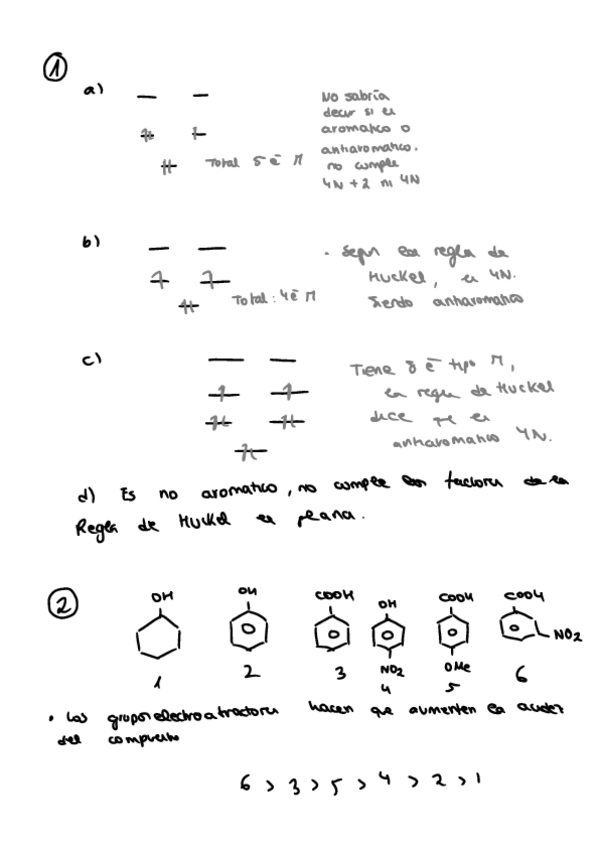 1
a)
No sabría
decir si es
aromatico o
antiaromatico.
no cumple
4N + 2 ni 4N
Total 5 ē π
b)
. Segun la regla de
Huckel, es 4N.
Siendo antiaromatico
Total: 4 ē π
c)
Tiene 8 ē tipo π,
la regla de Huckel
dice que es
antiaromatico 4N.
d) Es no aromatico, no cumple los factores de la
Regla de Huckel es plana.
2
OH OH COOH OH COOH COOH
NO2
NO2 OMe
1 2 3 4 5 6
• Los grupos electroatractores hacen que aumenten la acidez
del compuesto
6 > 3 > 5 > 4 > 2 > 1